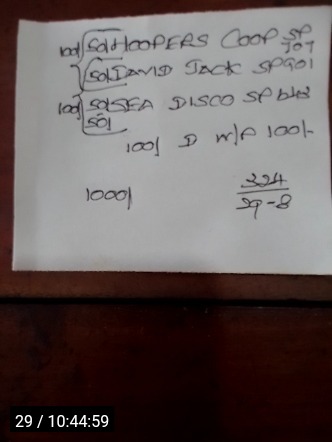 100/ 50/ HOOPERS COOP SP 707
50/ DAVID JACK SP 901
100/ 50/ SEA DISCO SP
50/
100/ D M/A 100/-
1000/
324
29-8
29 / 10:44:59